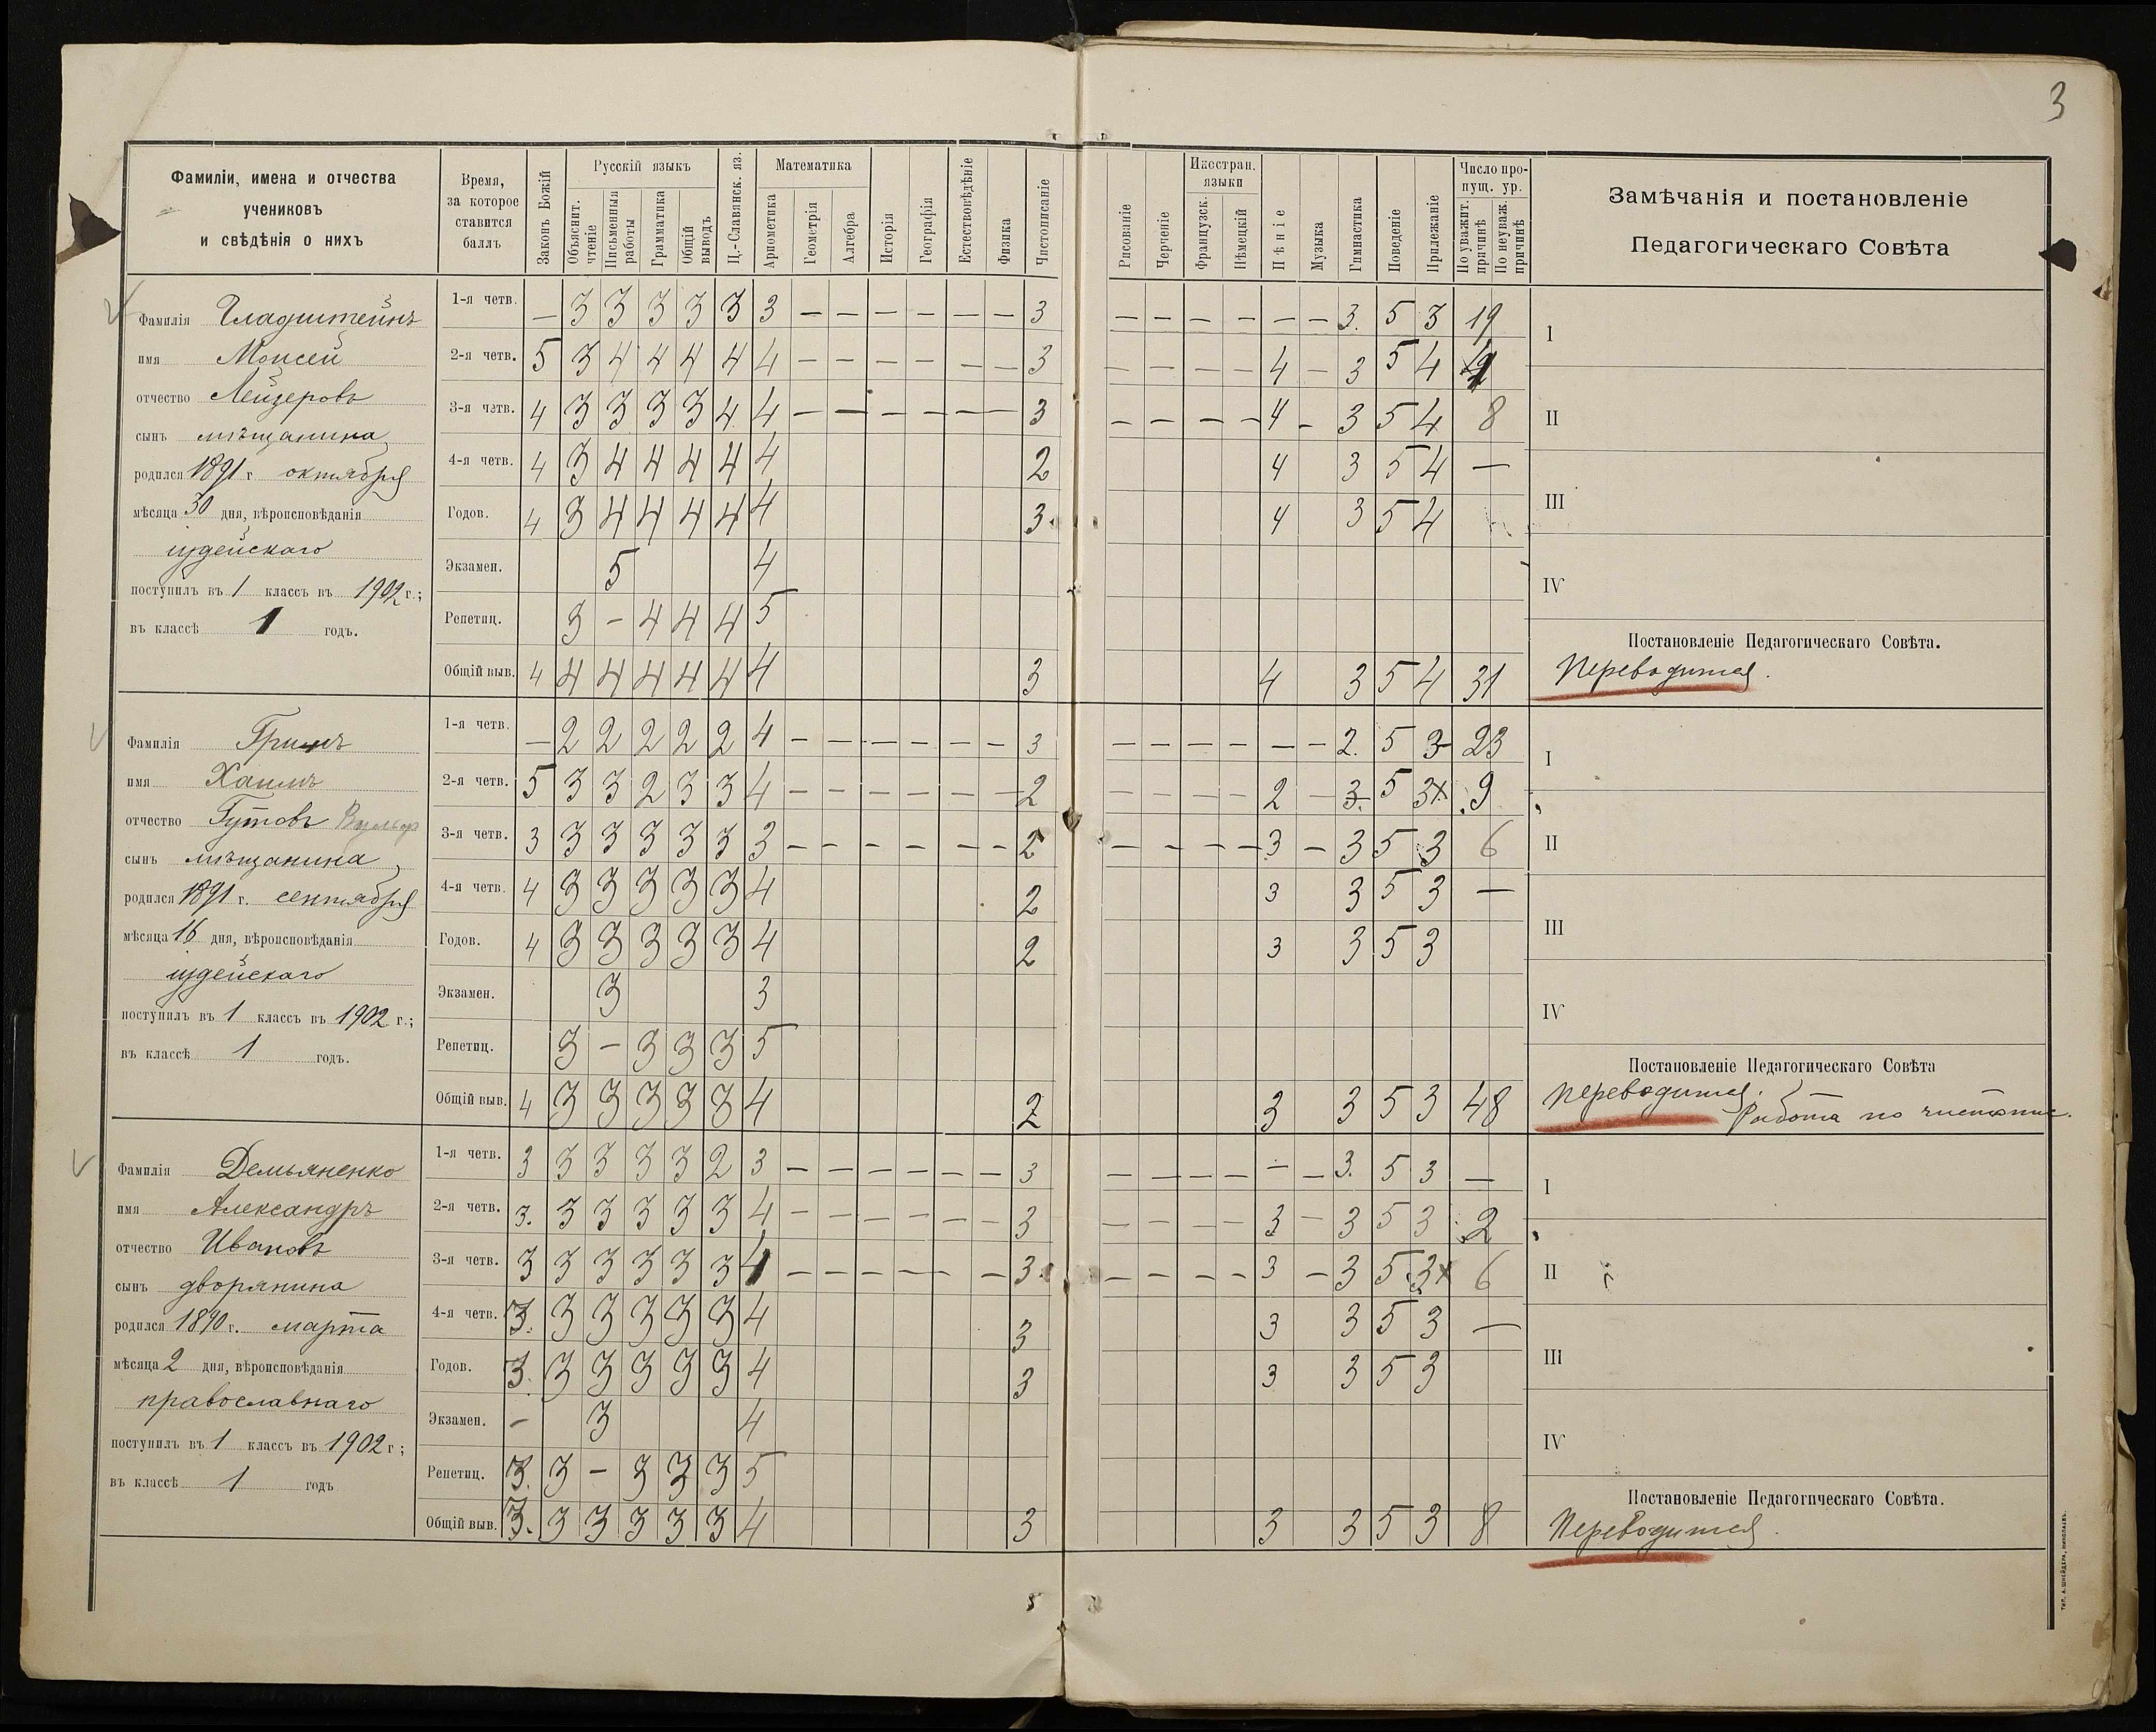 3
Фамиліи, имена и отчества
учениковъ
и свѣдѣнія о нихъ
Время,
за которое
ставится
баллъ
Законъ Божій
Русскій языкъ
Объяснит. чтеніе
Письменныя работы
Грамматика
Общій выводъ
Ц.-Славянск. яз.
Математика
Ариѳметика
Геометрія
Алгебра
Исторія
Географія
Естествовѣдѣніе
Физика
Чистописаніе
Рисованіе
Черченіе
Иностран. языки
Французск.
Нѣмецкій
Пѣніе
Музыка
Гимнастика
Поведеніе
Прилежаніе
Число пропущ. ур.
По уважит. причинѣ
По неуваж. причинѣ
Замѣчанія и постановленіе
Педагогическаго Совѣта
Фамилія Гладштейнъ
имя Моисей
отчество Лейзеровъ
сынъ мѣщанина
родился 1891 г. октября
мѣсяца 30 дня, вѣроисповѣданія
іудейскаго
поступилъ въ 1 классъ въ 1902 г.;
въ классѣ 1 годъ.
1-я четв. — 3 3 3 3 3 3 — — — — — — 3 — — — — — — 3. 5 3 19
2-я четв. 5 3 4 4 4 4 4 — — — — — — 3 — — — — 4 — 3 5 4
3-я четв. 4 3 3 3 3 4 4 — — — — — — 3 — — — — 4 — 3 5 4 8
4-я четв. 4 3 4 4 4 4 4 2 4 3 5 4 —
Годов. 4 3 4 4 4 4 4 3 4 3 5 4
Экзамен. 5 4
Репетиц. 3 — 4 4 4 5
Общій выв. 4 4 4 4 4 4 4 3 4 3 5 4 31
I
II
III
IV
Постановленіе Педагогическаго Совѣта.
Переводится.
Фамилія Гринъ
имя Хаимъ
отчество Гутовъ
сынъ мѣщанина
родился 1891 г. сентября
мѣсяца 16 дня, вѣроисповѣданія
іудейскаго
поступилъ въ 1 классъ въ 1902 г.;
въ классѣ 1 годъ.
1-я четв. — 2 2 2 2 2 4 — — — — — — 3 — — — — — — 2. 5 3 23
2-я четв. 5 3 3 2 3 3 4 — — — — — — 2 — — — — 2 — 3. 5 3x 9
3-я четв. 3 3 3 3 3 3 3 — — — — — — 2 — — — — 3 — 3 5 3 6
4-я четв. 4 3 3 3 3 3 4 2 3 3 5 3 —
Годов. 4 3 3 3 3 3 4 2 3 3 5 3
Экзамен. 3 3
Репетиц. 3 — 3 3 3 5
Общій выв. 4 3 3 3 3 3 4 2 3 3 5 3 48
I
II
III
IV
Постановленіе Педагогическаго Совѣта
Переводится.
Работа по чистопис.
Фамилія Демьяненко
имя Александръ
отчество Ивановъ
сынъ дворянина
родился 1890 г. марта
мѣсяца 2 дня, вѣроисповѣданія
православнаго
поступилъ въ 1 классъ въ 1902 г;
въ классѣ 1 годъ
1-я четв. 3 3 3 3 3 2 3 — — — — — — 3 — — — — — — 3. 5 3 —
2-я четв. 3. 3 3 3 3 3 4 — — — — — — 3 — — — — 3 — 3 5 3 2
3-я четв. 3 3 3 3 3 3 4 — — — — — — 3 — — — — 3 — 3 5 3x 6
4-я четв. 3. 3 3 3 3 3 4 3 3 3 5 3 —
Годов. 3. 3 3 3 3 3 4 3 3 3 5 3
Экзамен. — 3 4
Репетиц. 3. 3 — 3 3 3 5
Общій выв. 3. 3 3 3 3 3 4 3 3 3 5 3 8
I
II
III
IV
Постановленіе Педагогическаго Совѣта.
Переводится.
Тип. А. Шнейдера, Николаевъ.